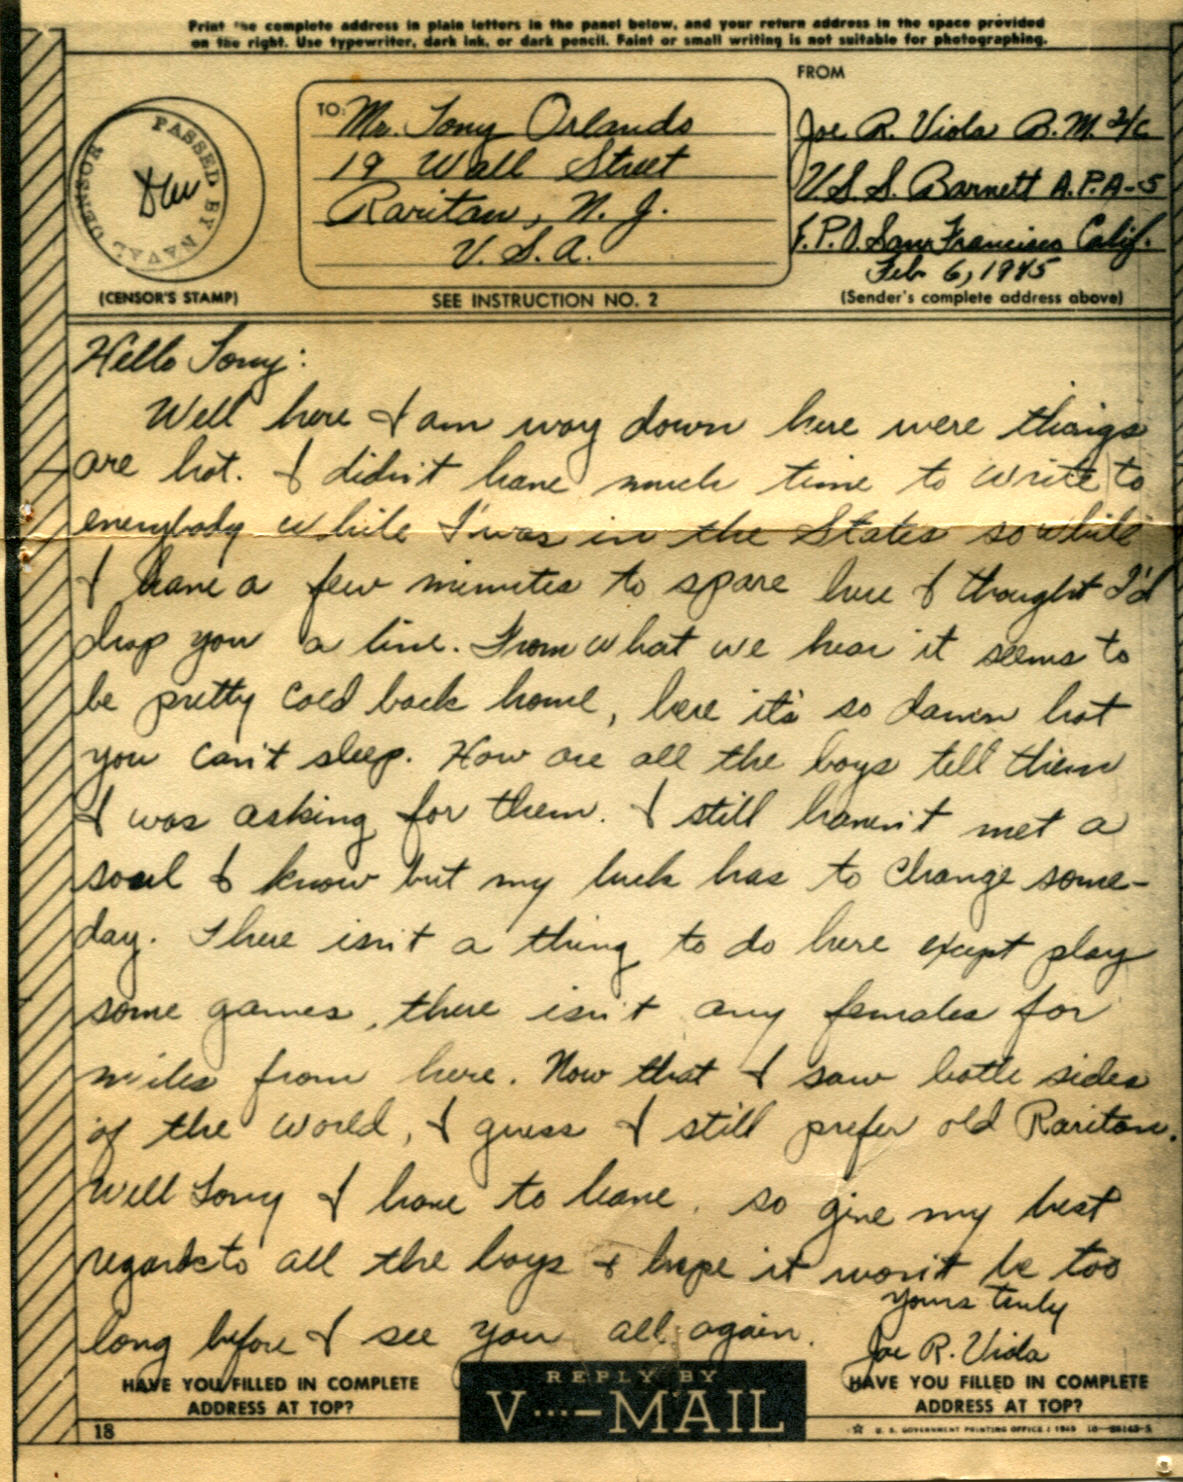 Print the complete address in plain letters in the panel below, and your return address in the space provided
on the right. Use typewriter, dark ink, or dark pencil. Faint or small writing is not suitable for photographing.
FROM
TO:
Mr. Tony Orlando
19 Wall Street
Raritan, N. J.
U. S. A.
Joe R. Viola B. M. 2/c
U. S. S. Barnett A.P.A-5
F. P. O. San Francisco Calif.
Feb 6, 1945
PASSED BY NAVAL CENSOR
(CENSOR'S STAMP)
SEE INSTRUCTION NO. 2
(Sender's complete address above)
Hello Tony:
Well here I am way down here were things
are hot. I didn't have much time to write to
everybody while I was in the States so while
I have a few minutes to spare here I thought I'd
drop you a line. From what we hear it seems to
be pretty cold back home, here it's so damn hot
you can't sleep. How are all the boys tell them
I was asking for them. I still haven't met a
soul I know but my luck has to change some-
day. There isn't a thing to do here except play
some games, there isn't any females for
miles from here. Now that I saw both sides
of the world, I guess I still prefer old Raritan.
Well Tony I have to leave, so give my best
regards to all the boys & hope it won't be too
long before I see you all again.
Yours truly
Joe R. Viola
HAVE YOU FILLED IN COMPLETE
ADDRESS AT TOP?
REPLY BY
V···—MAIL
HAVE YOU FILLED IN COMPLETE
ADDRESS AT TOP?
18
☆ U. S. GOVERNMENT PRINTING OFFICE : 1943